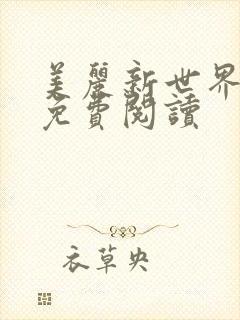 美麗新世界
免費閱讀
衣草央